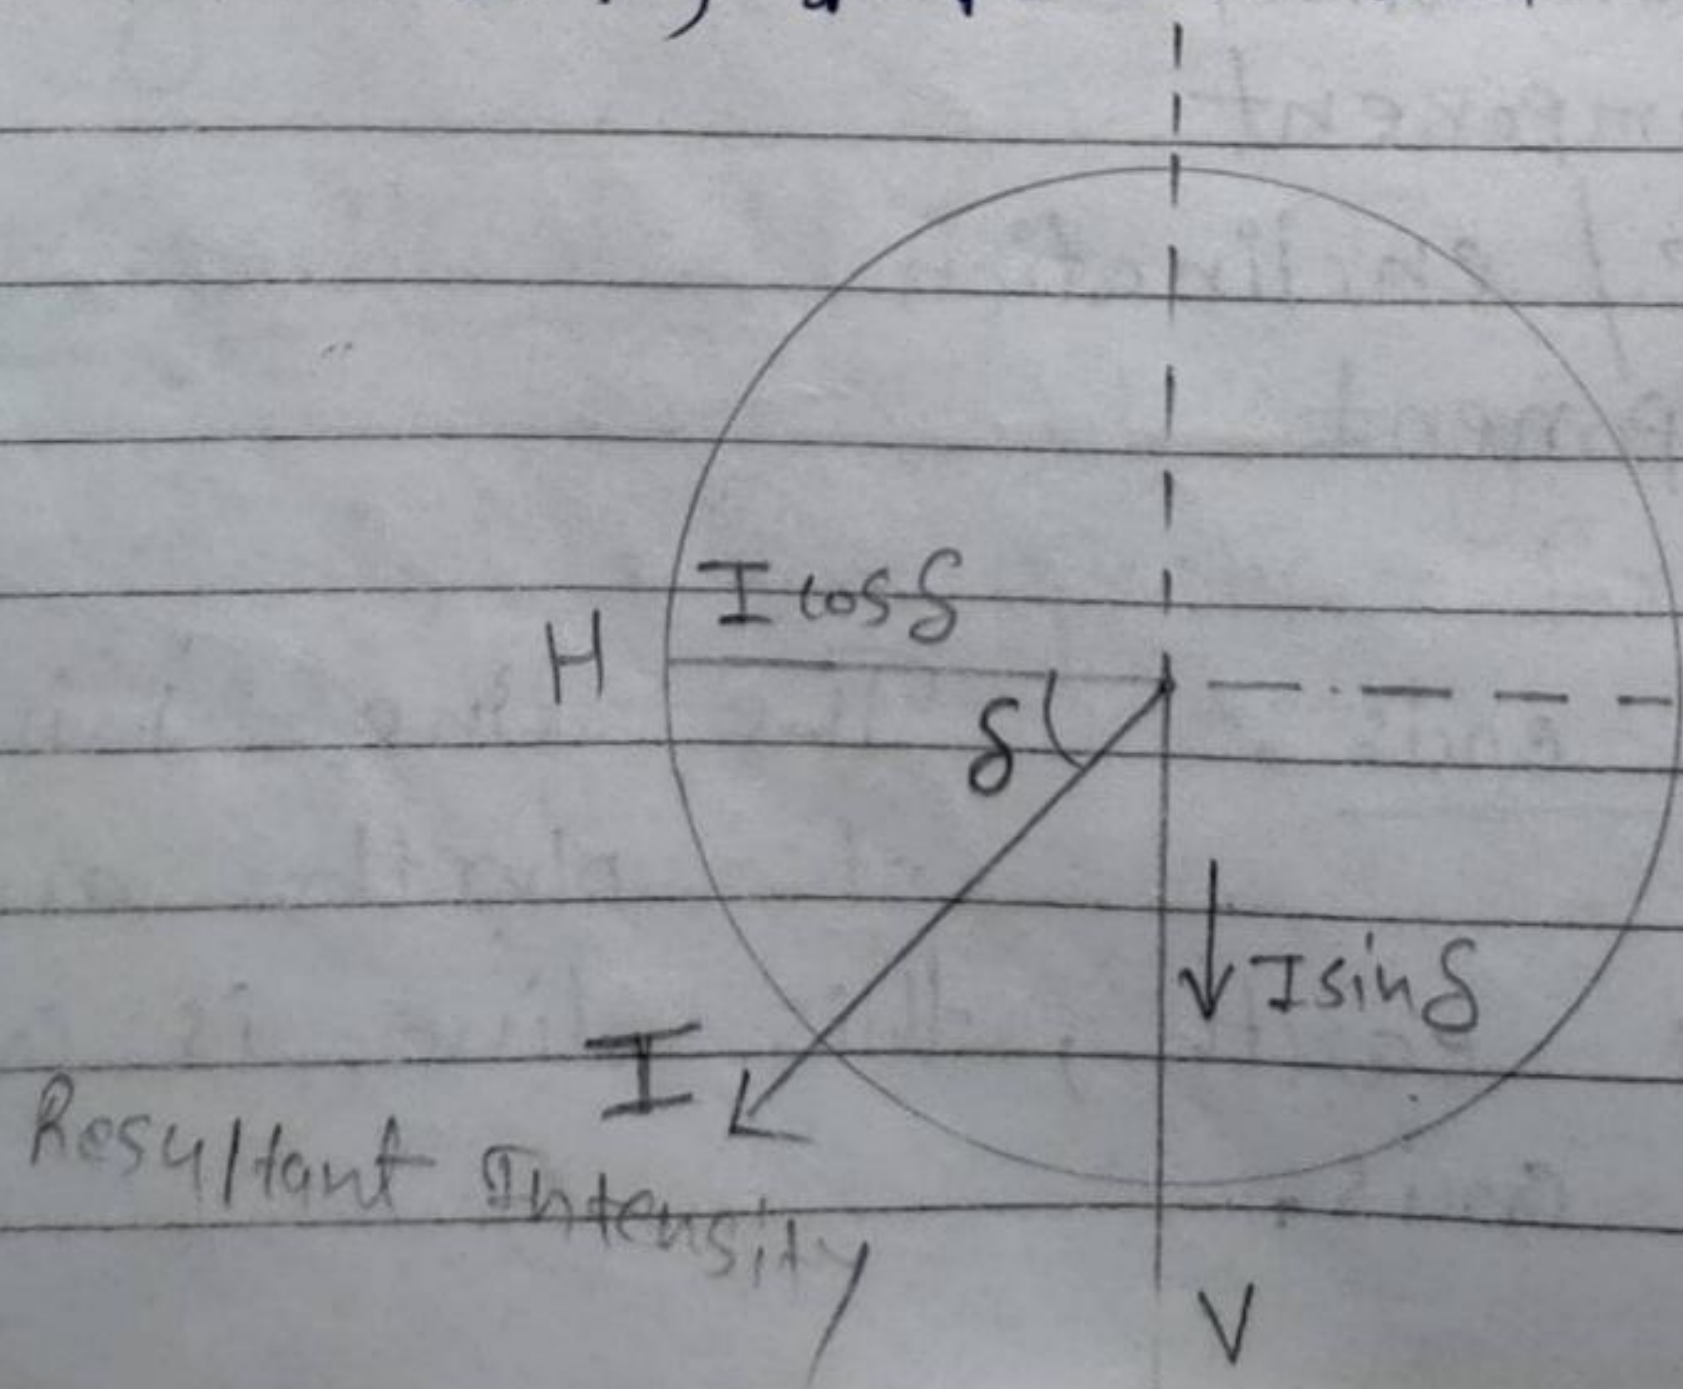 I cos δ
H
δ
I sin δ
I
Resultant Intensity
V